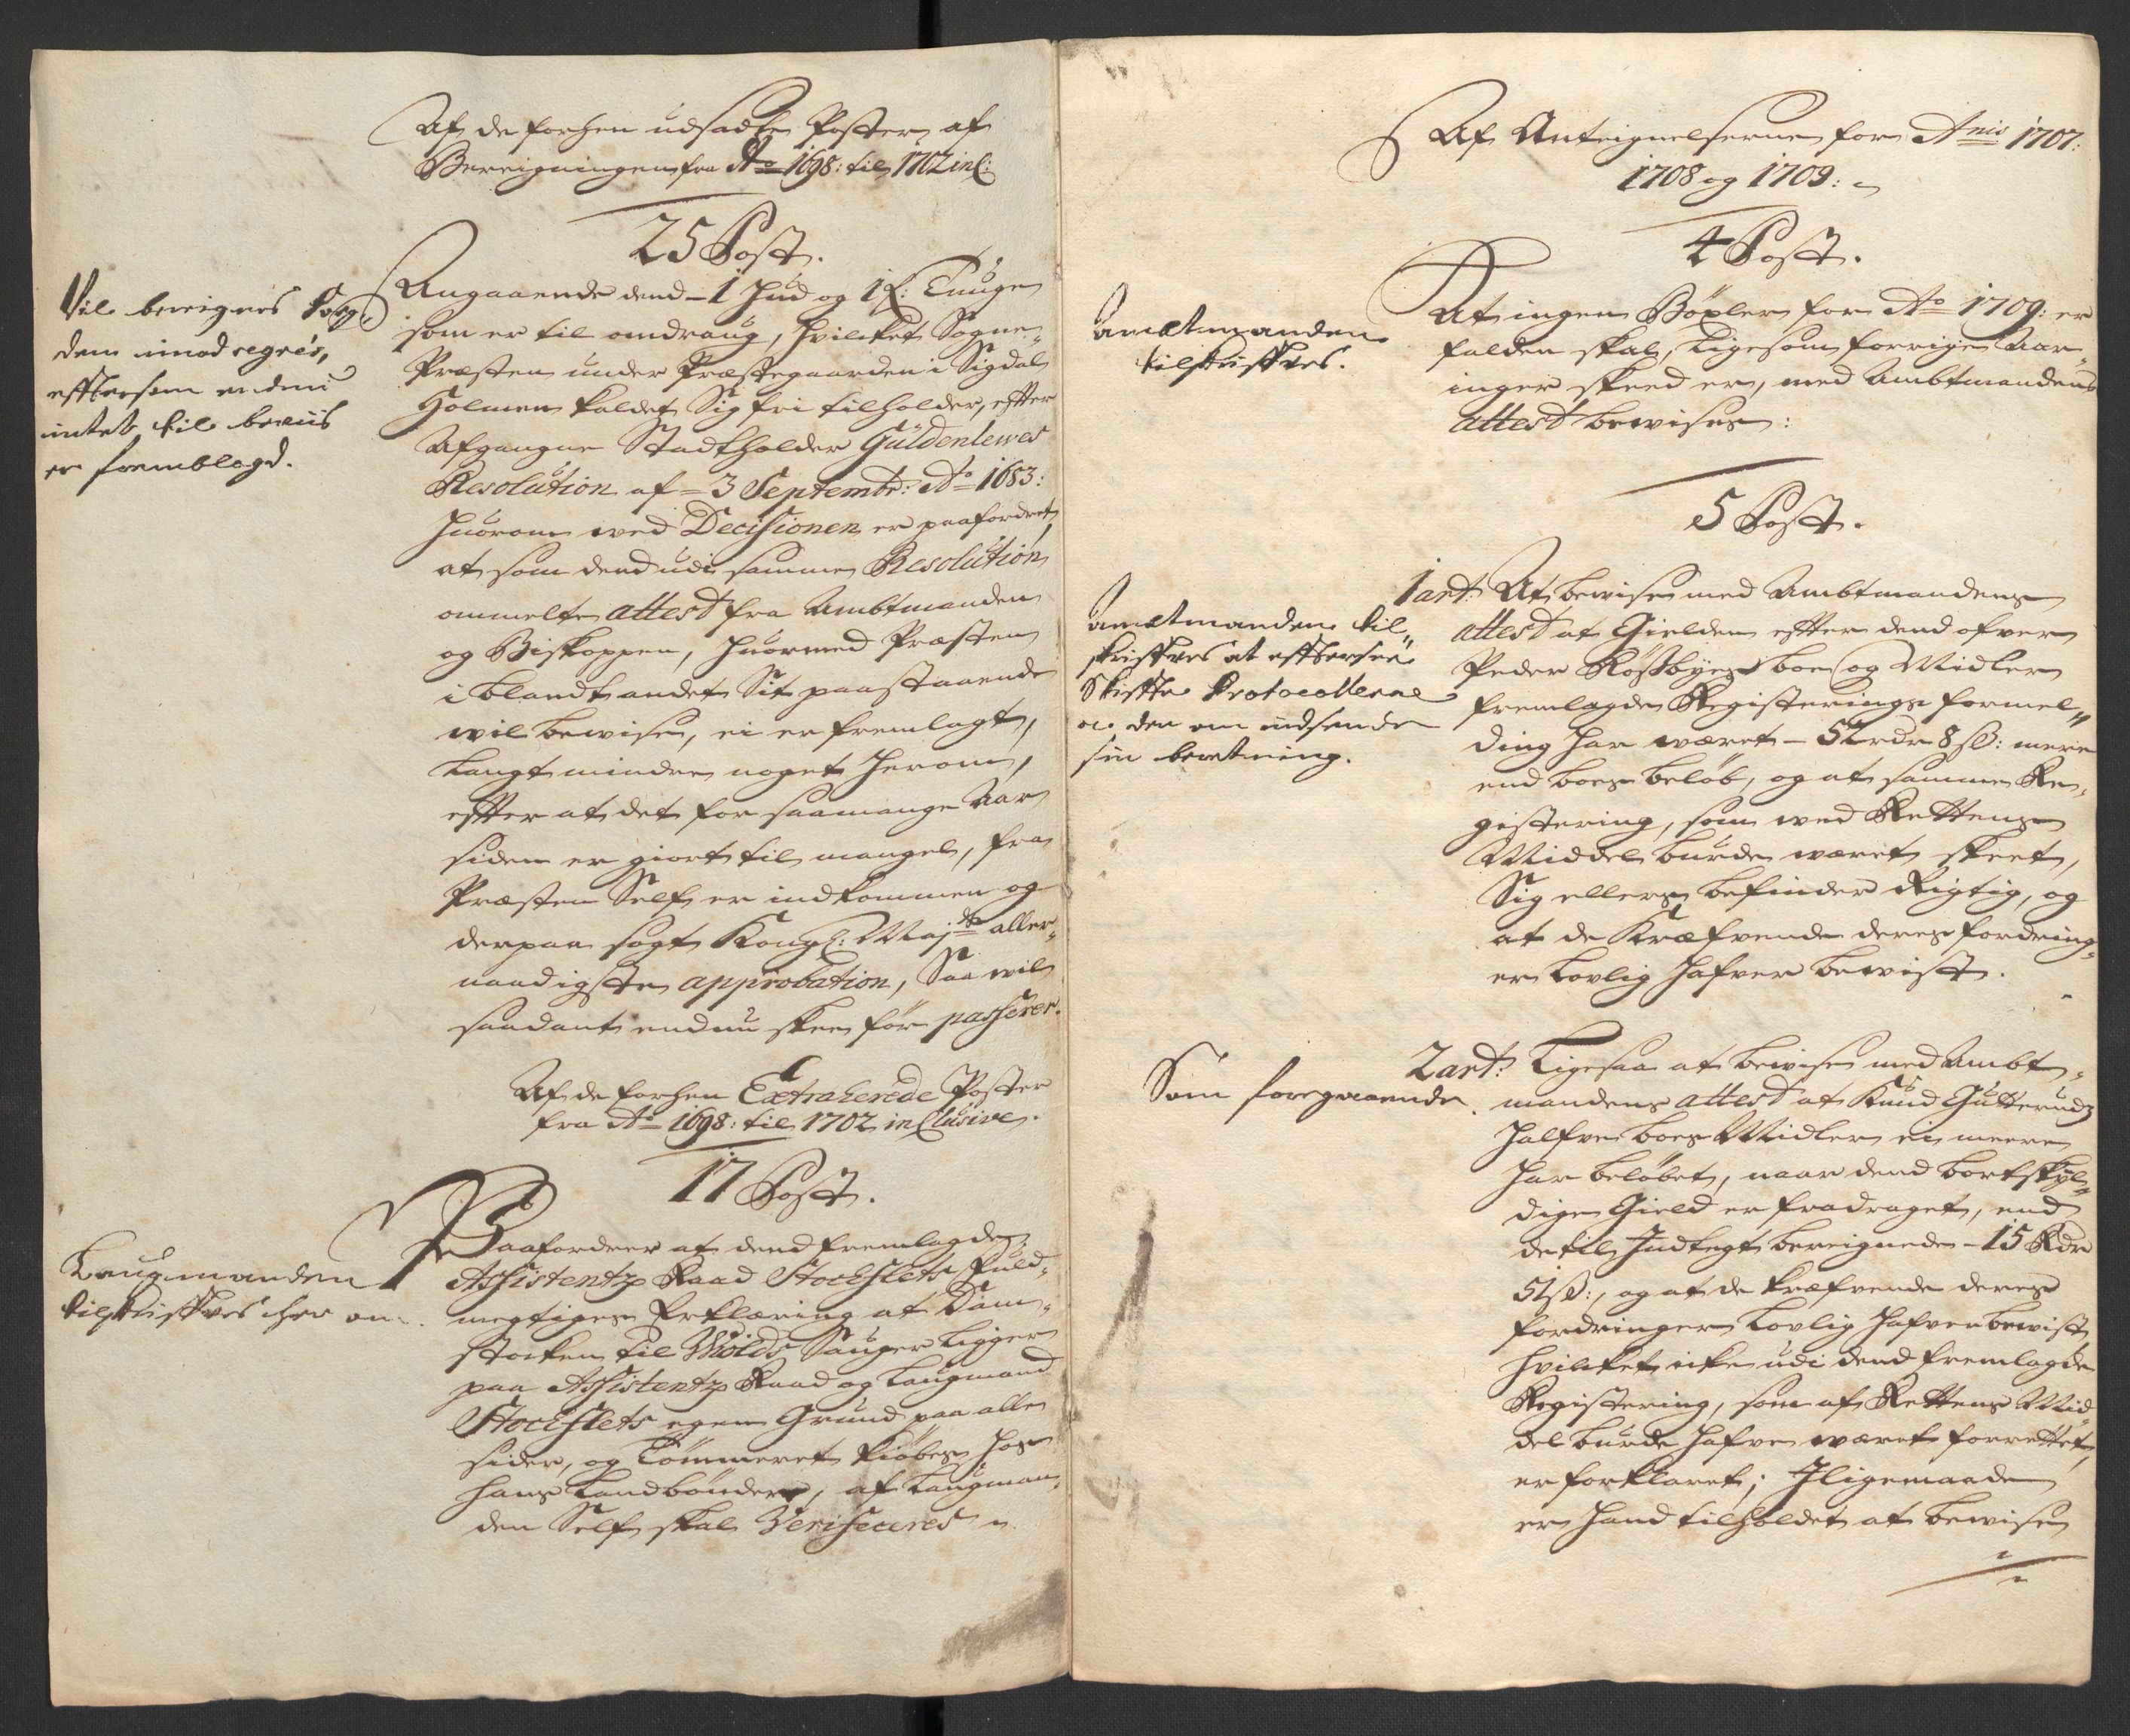 Af de forhen udsadte Poster af
Bereigningen fra Ao 1698: til 1702 incl:
25 Post.
Vil bereignes Fog-
dem imod regres,
efftersom endnu
intet til beviis
er fremblagd.
Angaaende dend 1 Hud og 1 f: Tunge
som er til omdraug, hvilcket Sogne-
Præsten under Præstegaarden i Sigdal
Holmen kaldet Sig fri tilholder, effter
Afgangne Stadtholder Güldenlewes
Resolution af 3 Septembr: Ao 1683:
huorom wed Decisionen er paafordret,
at som dend udi samme Resolution
ommelte attest fra Ambtmanden
og Biskoppen, huormed Præsten
i blandt andet Sit paastaaende
wil bewise, ei er fremlagt,
Langt mindre noget herom,
effter at det for saamange Aar
siden er giort til mangel, fra
Præsten Self er indkommen og
derpaa søgt Kongl: Majts aller-
naadigste approbation, Saa wil
saadant endnu skee før passerer.
Af de forhen Extraherede Poster
fra Ao 1698: til 1702 inclusive.
17 Post.
Laugmanden
tilskrifves her om.
Paafordres at dend fremlagde
Assistentz Raad Stockflets Fuld-
megtiges Erklæring at Dam-
stocken til Wiolds Sauger Ligger
paa Assistentz Raad og Laugmand
Stockflets egen Grund paa alle
sider, og Tømmeret kiøbes hos
hans Landbønder, af Laugman-
den Self skal Verificeres
Af Anteignelserne for Anis 1707:
1708 og 1709:
4 Post.
Amtmanden
tilskrifves.
At ingen Böxler for Ao 1709: er
falden skal, Ligesom forrige Aar-
inger skeed er, med Ambtmandens
attest bewises:
5 Post.
Amtmanden til-
skrifves at efftersee
Skiffte Protocollerne
og den om indsende
sin beretning.
1 art: At bewise med Ambtmandens
attest at Gielden effter dend ofver
Peder Rossbyes boe og Midler
fremlagde Registerings formel-
ding har wæret 52 rdr 8 s: mere
end boes beløb, og at samme Re-
gistering, som wed Rettens
Middel burde wæret skeet,
Sig ellers befinder Rigtig, og
at de Kræfvende deres fordring-
er Lovlig hafver bewist.
Som foregaaende.
2 art: Ligesaa at bewise med Ambt-
mandens attest at Knud Gutterudz
halfve boes Midler ei meere
har beløbet, naar dend bortskyl-
dige Gield er fradraget, end
de til Indtegt bereignede 15 Rdr
51 s:, og at de kræfvende deres
fordringer Lovlig hafver bewist,
hvilcket icke udi dend fremlagde
Registering, som af Rettens Mid-
del burde hafve wæret forrettet,
er forklaret; Jligemaade
er hand tilholdet at bewise